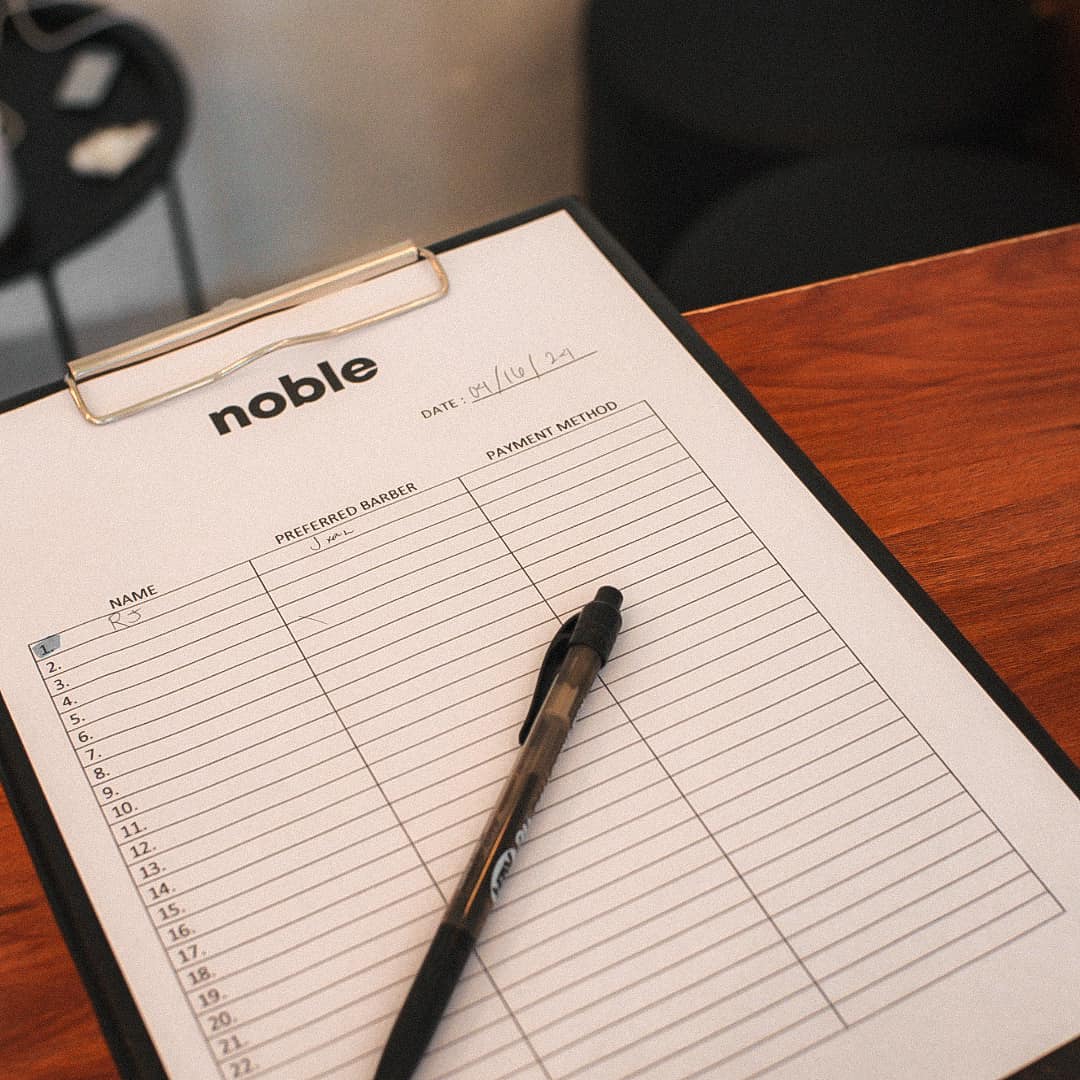 noble
DATE : 09/16/24
NAME PREFERRED BARBER PAYMENT METHOD
1. RJ
2.
3.
4.
5.
6.
7.
8.
9.
10.
11.
12.
13.
14.
15.
16.
17.
18.
19.
20.
21.
22.